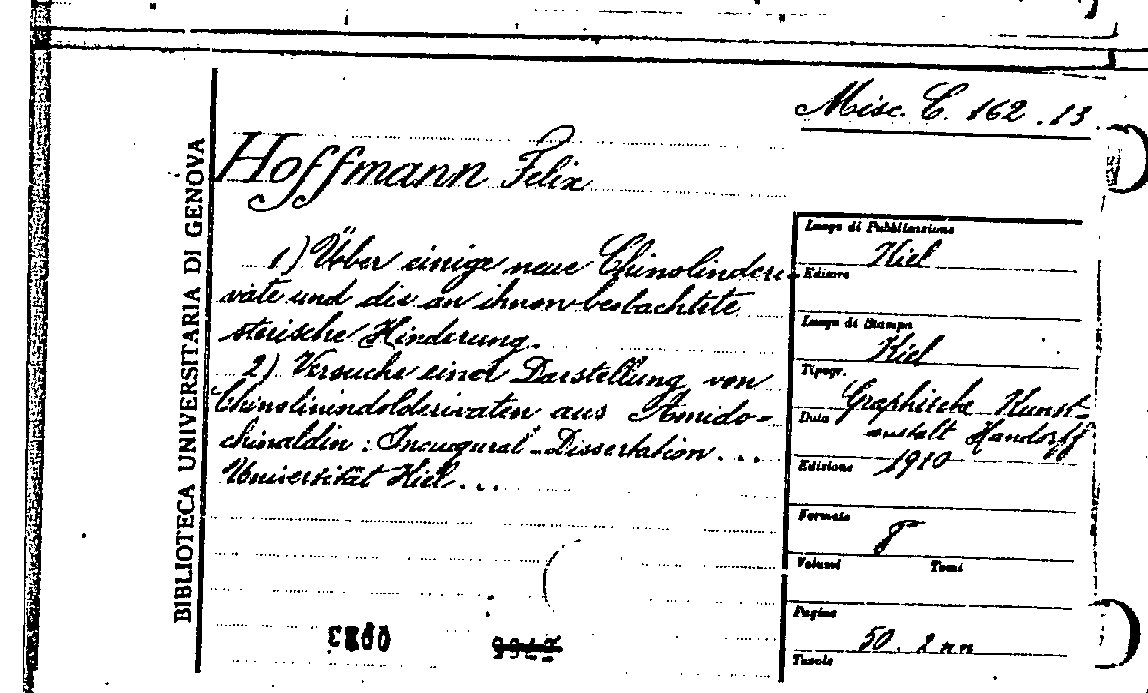 Misc. C. 162.13
BIBLIOTECA UNIVERSITARIA DI GENOVA
Hoffmann Felix
1) Über einige neue Chinolinderi-
vate und die an ihnen beobachtete
sterische Hinderung.
2) Versuche einer Darstellung von
Chinolinindolderivaten aus Amido-
chinaldin: Inaugural-Dissertation...
Universität Kiel...
Luogo di Pubblicazione
Kiel
Editore
Luogo di Stampa
Kiel
Tipogr.
Graphische Kunst-
Data
anstalt Handorff
1910
Edizione
Formato
8°
Volumi Tomi
Pagine
50. 2 nn
Tavole